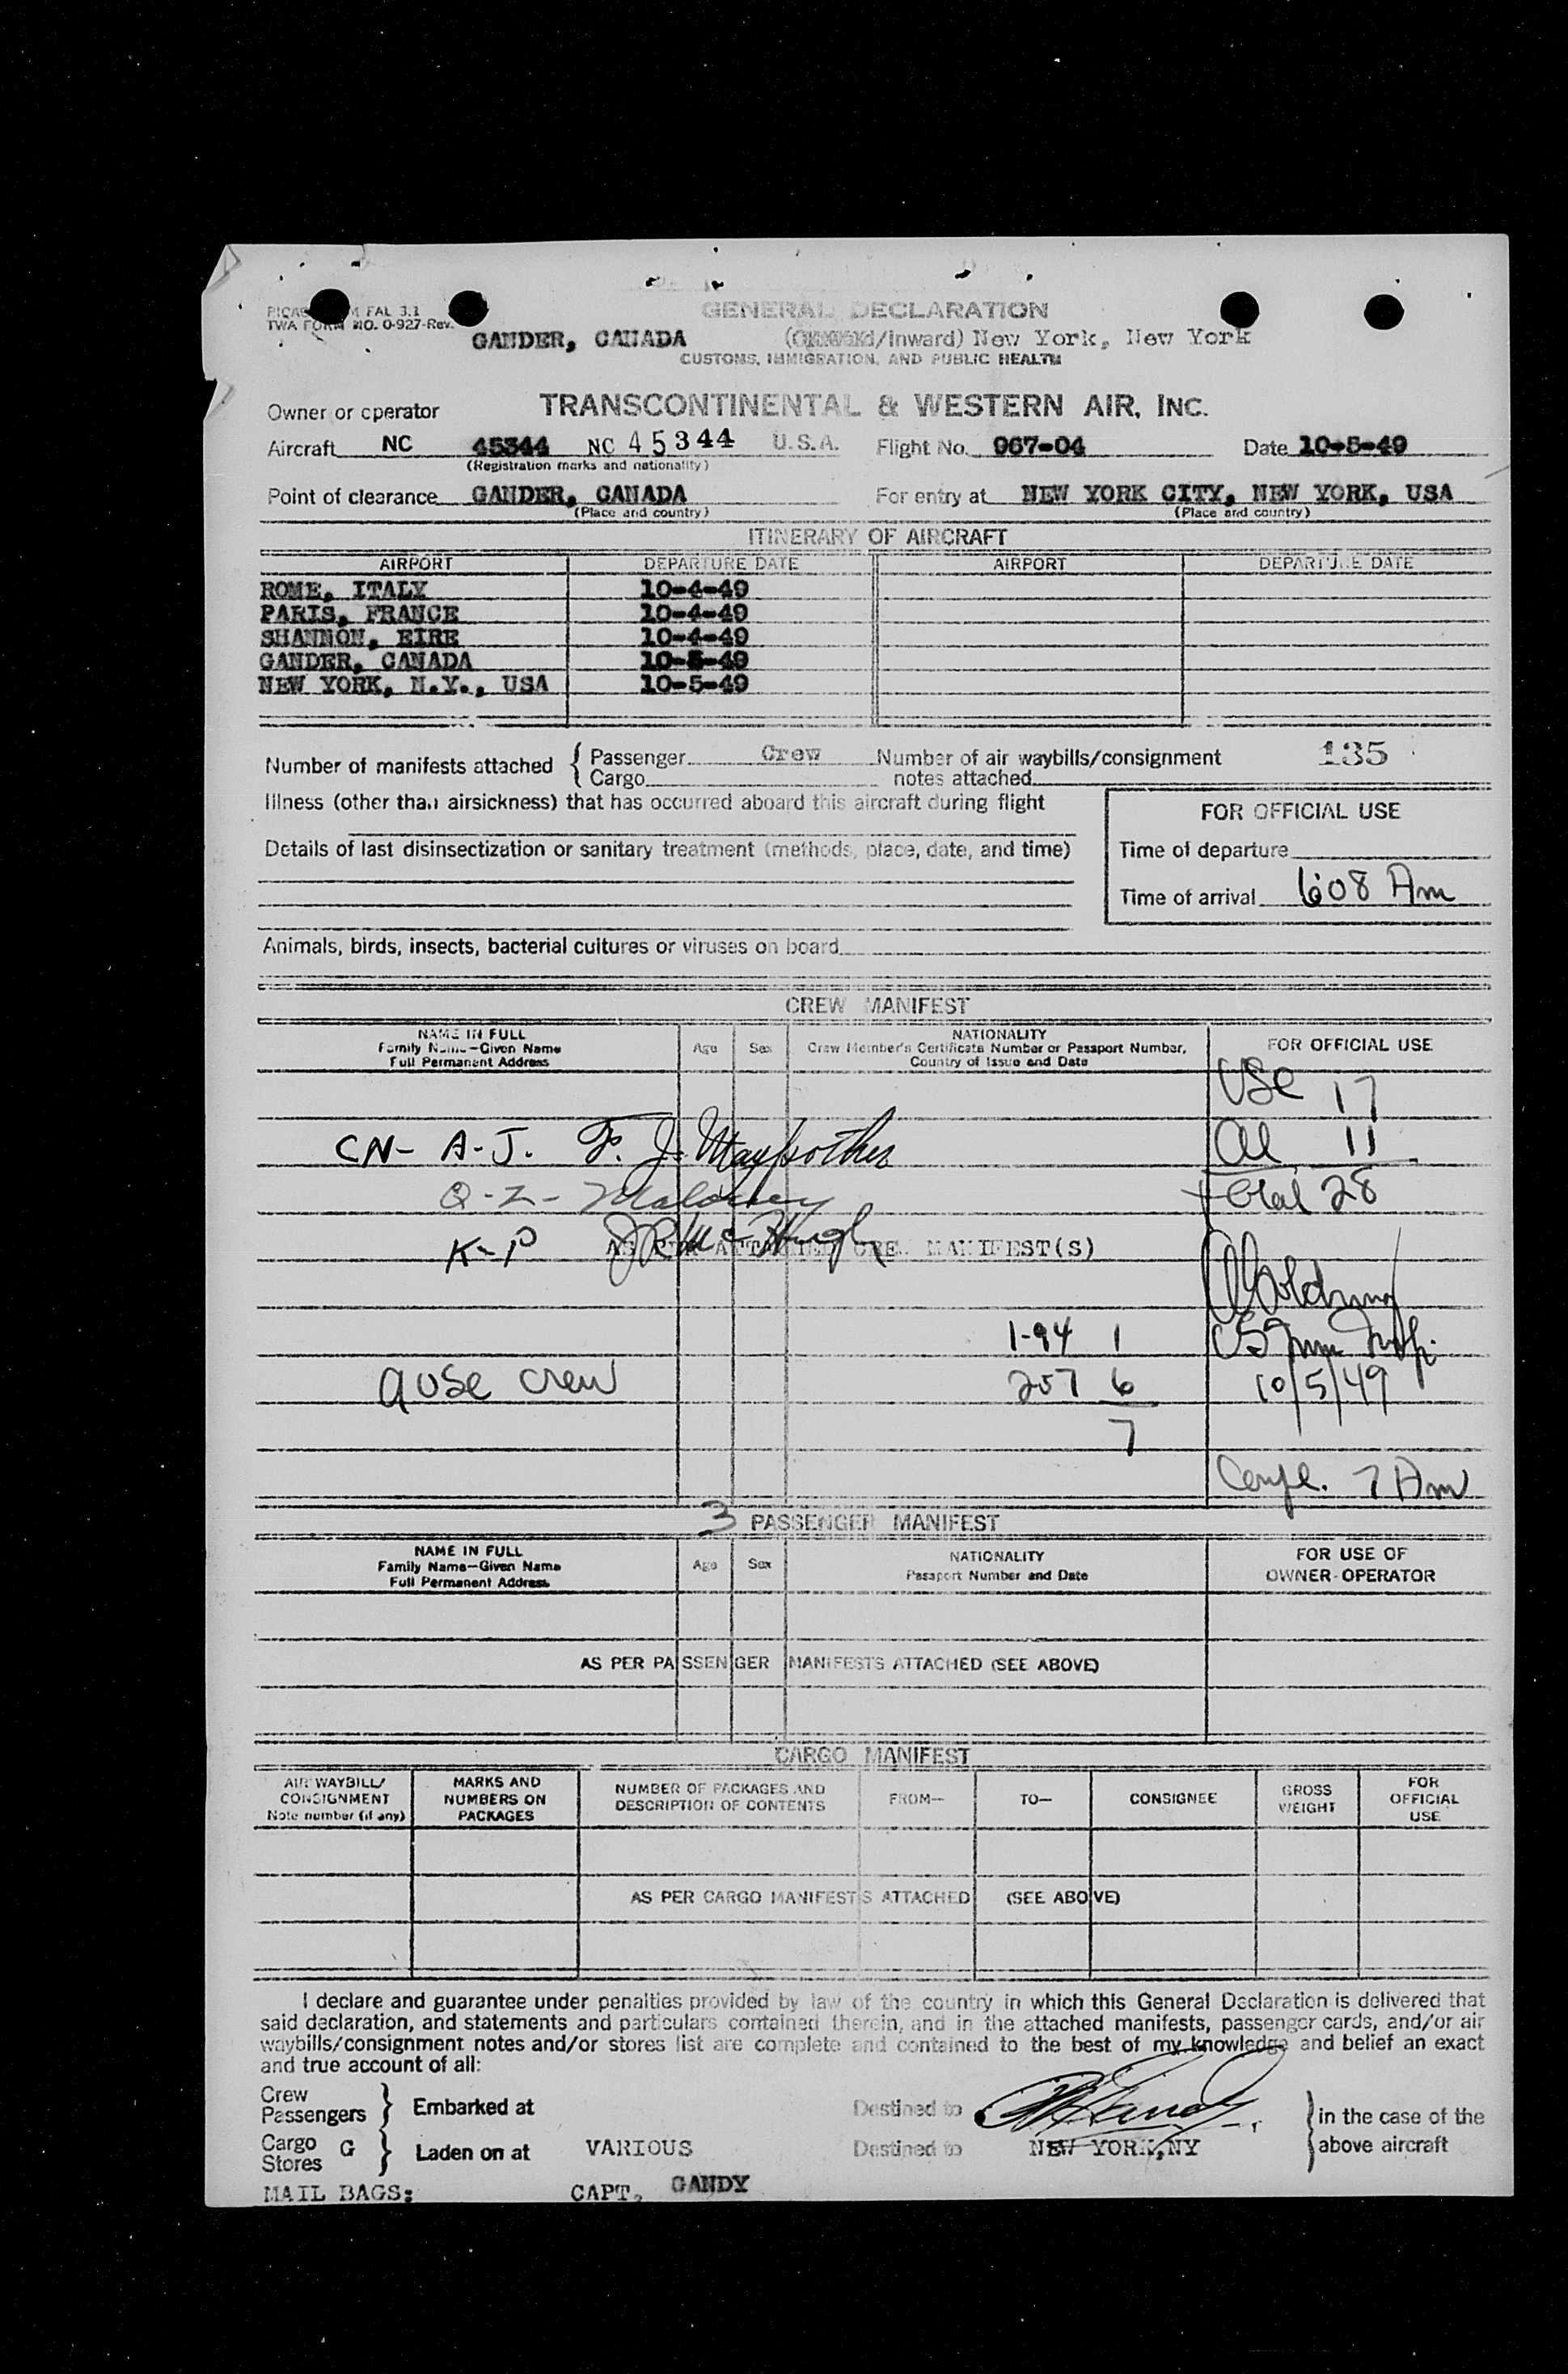 FAL 3.1
TWA FORM NO. O-927-Rev.
GENERAL DECLARATION
GANDER, CANADA (/Inward) New York, New York
CUSTOMS, IMMIGRATION, AND PUBLIC HEALTH
Owner or operator TRANSCONTINENTAL & WESTERN AIR, INC.
Aircraft NC 45344 NC 45344 U.S.A. Flight No. 967-04 Date 10-5-49
(Registration marks and nationality)
Point of clearance GANDER, CANADA For entry at NEW YORK CITY, NEW YORK, USA
(Place and country) (Place and country)
ITINERARY OF AIRCRAFT
AIRPORT DEPARTURE DATE AIRPORT DEPARTURE DATE
ROME, ITALY 10-4-49
PARIS, FRANCE 10-4-49
SHANNON, EIRE 10-4-49
GANDER, CANADA 10-5-49
NEW YORK, N.Y., USA 10-5-49
Number of manifests attached { Passenger Crew Number of air waybills/consignment 135
Cargo notes attached
Illness (other than airsickness) that has occurred aboard this aircraft during flight
FOR OFFICIAL USE
Details of last disinsectization or sanitary treatment (methods, place, date, and time)
Time of departure
Time of arrival 6:08 Am
Animals, birds, insects, bacterial cultures or viruses on board
CREW MANIFEST
NAME IN FULL Age Sex NATIONALITY FOR OFFICIAL USE
Family Name—Given Name Crew Member's Certificate Number or Passport Number,
Full Permanent Address Country of Issue and Date
USC 17
CN- A-J. F. J. Al 11
Q-Z- Maloney total 28
K-P JR McHugh
AS PER ATTACHED CREW MANIFEST(S)
I-94 1
9 USC crew 257 6 10/5/49
7
Compl. 7 Am
3 PASSENGER MANIFEST
NAME IN FULL Age Sex NATIONALITY FOR USE OF
Family Name—Given Name Passport Number and Date OWNER-OPERATOR
Full Permanent Address
AS PER PASSENGER MANIFESTS ATTACHED (SEE ABOVE)
CARGO MANIFEST
AIR WAYBILL/ CONSIGNMENT Note number (if any) MARKS AND NUMBERS ON PACKAGES NUMBER OF PACKAGES AND DESCRIPTION OF CONTENTS FROM— TO— CONSIGNEE GROSS WEIGHT FOR OFFICIAL USE
AS PER CARGO MANIFESTS ATTACHED (SEE ABOVE)
I declare and guarantee under penalties provided by law of the country in which this General Declaration is delivered that
said declaration, and statements and particulars contained therein, and in the attached manifests, passenger cards, and/or air
waybills/consignment notes and/or stores list are complete and contained to the best of my knowledge and belief an exact
and true account of all:
Crew
Passengers } Embarked at Destined to } in the case of the
Cargo G
Stores } Laden on at VARIOUS Destined to NEW YORK, NY above aircraft
MAIL BAGS: CAPT. GANDY